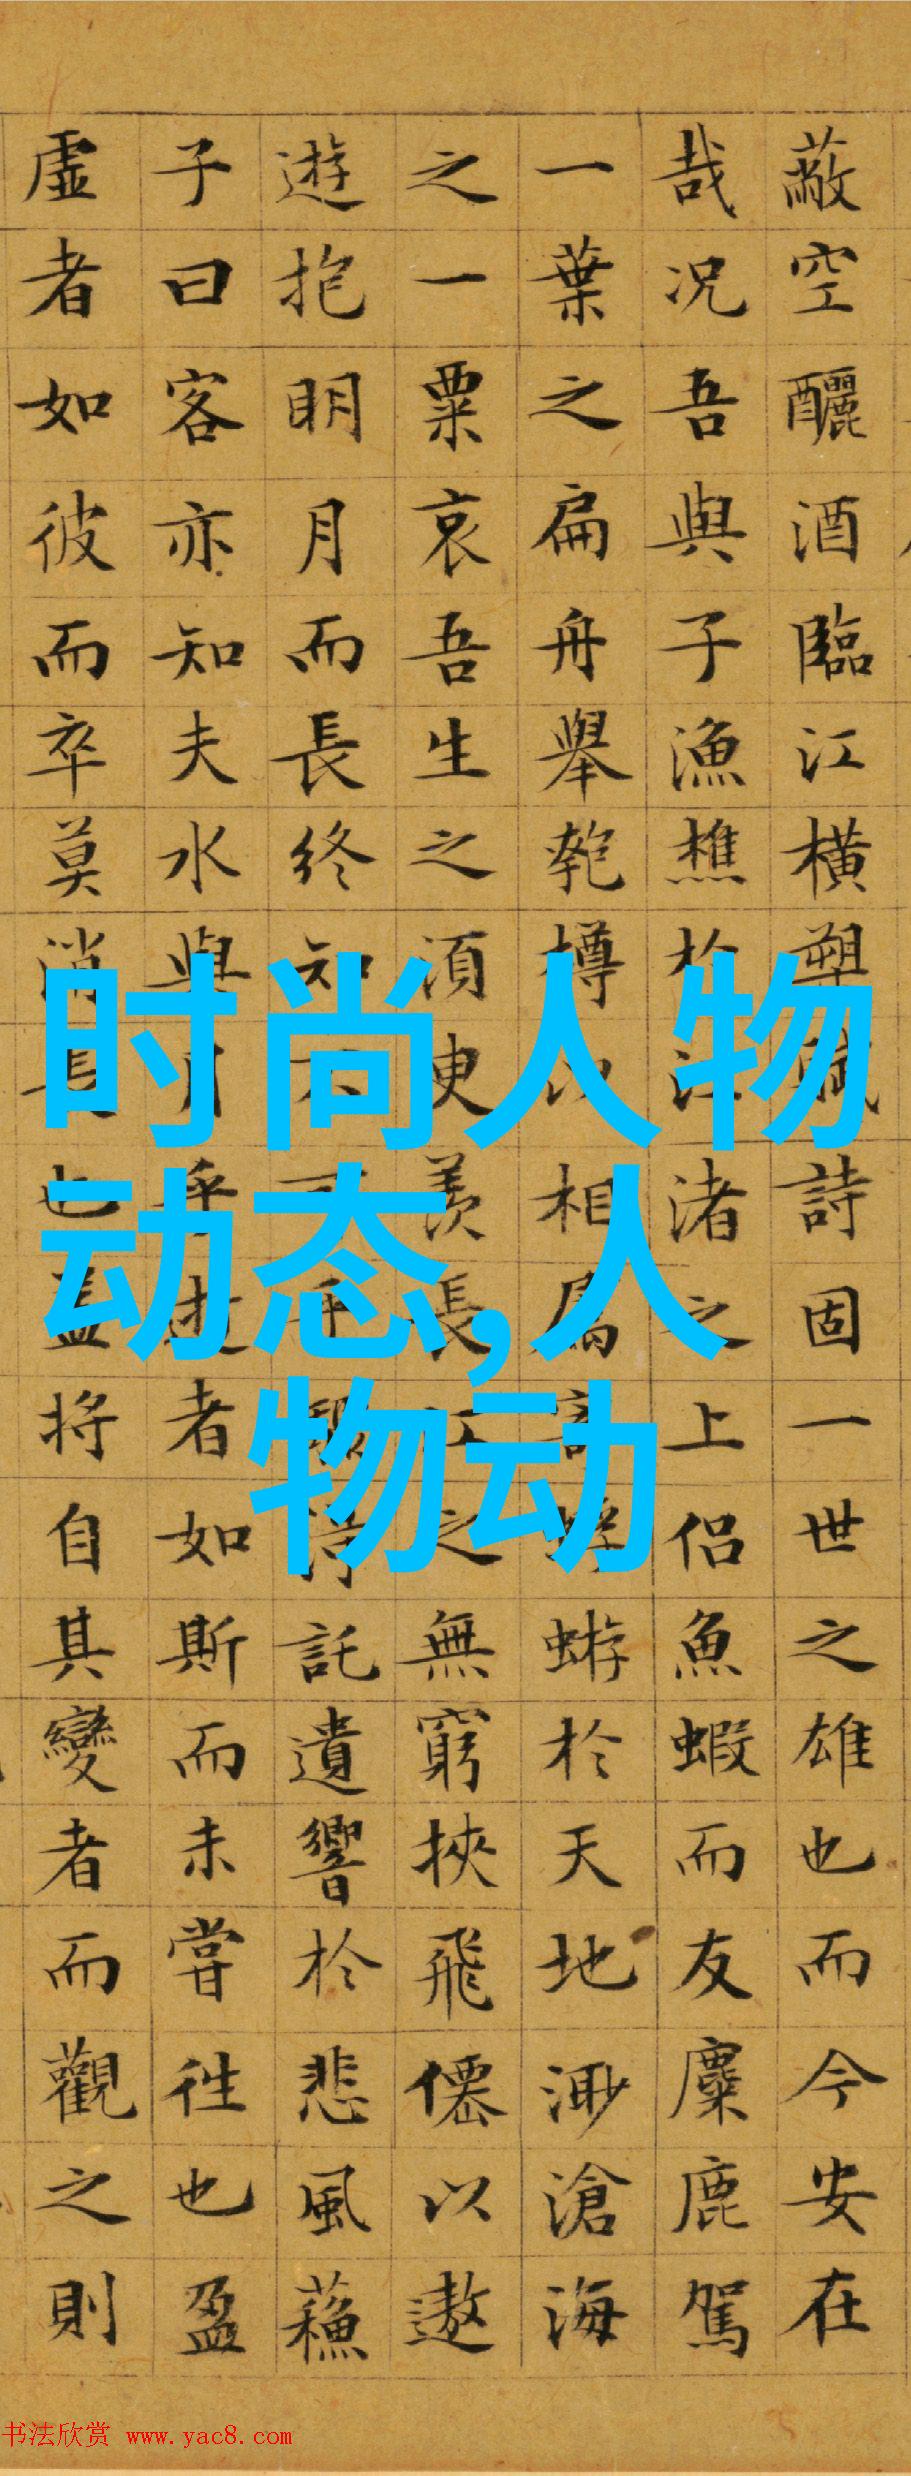 蔽空釃酒臨江橫槊賦詩固一世之雄也而今安在
哉况吾與子漁樵於江渚之上侣魚蝦而友麋鹿駕
一葉之扁舟舉匏樽以相屬客蜉蝣於天地渺滄海
之一粟哀吾生之須臾羨長江之無窮挾飛僊以遨
遊抱明月而長終知不可乎驟得託遺響於悲風蘓
子曰客亦知夫水與月乎逝者如斯而未嘗往也盈
虛者如彼而卒莫消長也盖將自其變者而觀之則
时尚人物
动态,人
物动
书法欣赏 www.yac8.com